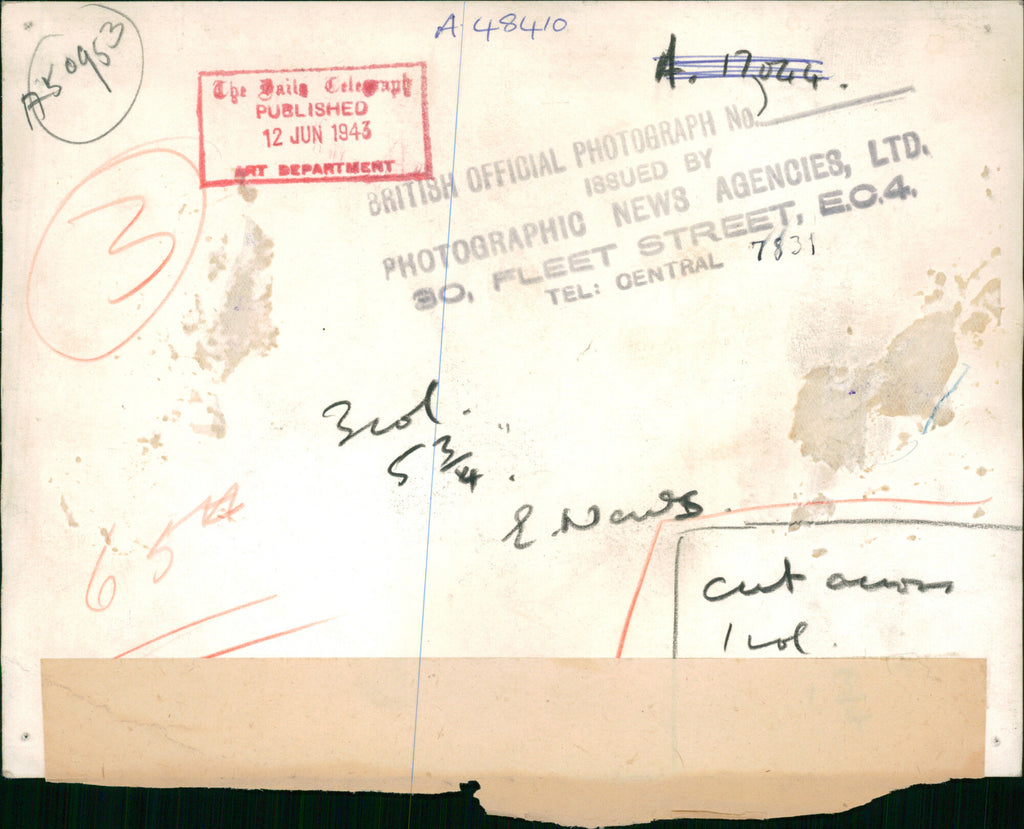 A 48410
A50953
A. 17044.
The Daily Telegraph
PUBLISHED
12 JUN 1943
ART DEPARTMENT
BRITISH OFFICIAL PHOTOGRAPH No.
ISSUED BY
PHOTOGRAPHIC NEWS AGENCIES, LTD.
30, FLEET STREET, E.C.4.
TEL: CENTRAL 7831
3
3 col.
5 3/4".
E. News.
6 5
cut across
1 col.